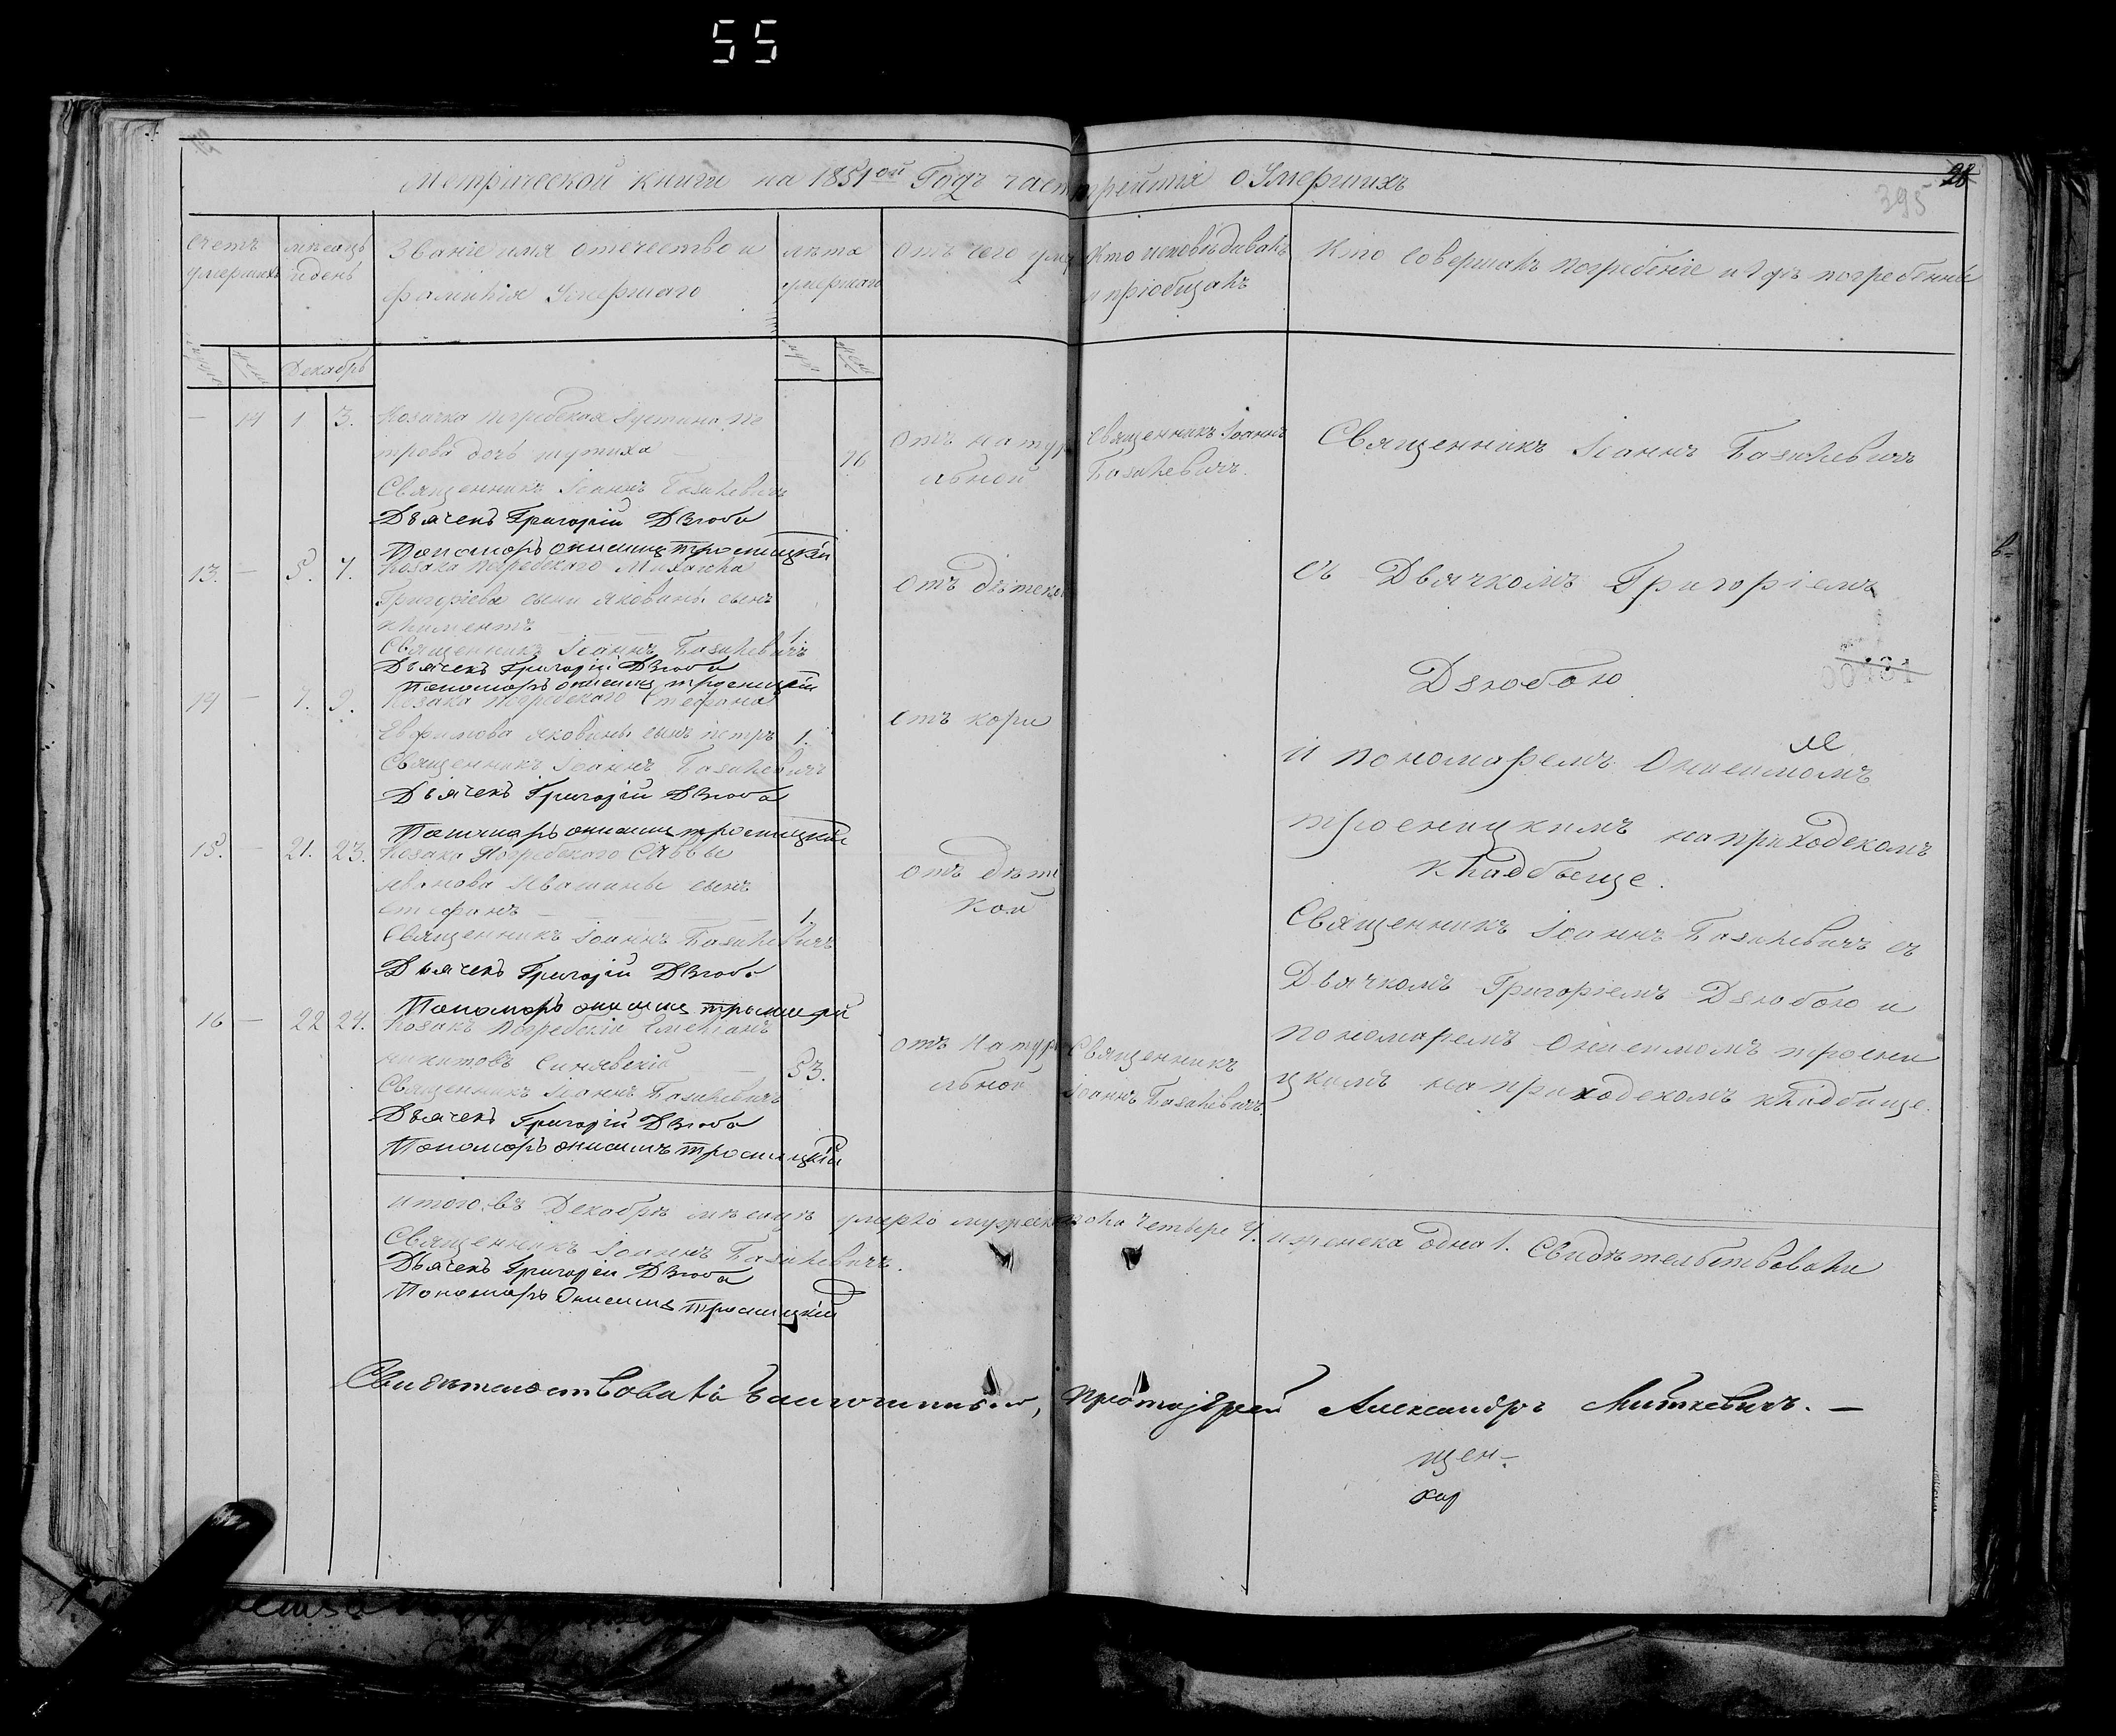 55
Метрической книги на 1851ой Годъ часть третія о Умершихъ
28
395
Счетъ умершихъ
мѣсяцъ и день
Званіе имя отечество и фамилія Умершаго
лѣта умершаго
отъ чего умер
Кто исповѣдивалъ и пріобщалъ
Кто совершалъ погребеніе и Гдѣ погребенны
Декабрь
— 14 1 3. Козачка Погребская Іустина Пе
трова дочь
76
отъ натур
альной
Священникъ Іоаннъ
Базилевичъ.
Священникъ Іоаннъ Базилевичъ
Дьячекъ Григорій Дзюба
Пономаръ Онисимъ Тросницкій
13. — 5. 7. Козака Погребского Михаила
Григоріева сына Яковины сынъ
Климентъ 1.
отъ дѣтско
Священникъ Іоаннъ Базилевичъ
Дьячекъ Григорій Дзюба
Пономаръ Онисимъ Тросницкій
14 — 7. 9. Козака Погребского Стефана
Евфимова Яковины сынъ Петръ 1.
отъ кори
Священникъ Іоаннъ Базилевичъ
Дьячекъ Григорій Дзюба
Пономаръ Онисимъ Тросницкій
15. — 21. 23. Козака Погребского Саввы
Иванова Ивашины сынъ
Стефанъ 1.
отъ дѣтс
кой
Священникъ Іоаннъ Базилевичъ
Дьячекъ Григорій Дзюба
Пономаръ Онисимъ Тросницкій
16 — 22 24. Козакъ Погребскій Емеліанъ
Никитовъ Синявскій 53.
отъ натур
альной
Священникъ
Іоаннъ Базилевичъ.
Священникъ Іоаннъ Базилевичъ
Дьячекъ Григорій Дзюба
Пономаръ Онисимъ Тросницкій
Священникъ Іоаннъ Базилевичъ
съ Дьячкомъ Григоріемъ
Дзюбою
и пономаремъ Онисимомъ
Тросницкимъ на приходскомъ
кладбыще.
Священникъ Іоаннъ Базилевичъ съ
Дьячкомъ Григоріемъ Дзюбою и
пономаремъ Онисимомъ Тросни
цкимъ на приходскомъ кладбище.
Итого: въ Декабрѣ мѣсяцѣ умерло мужеск пола четыре 4. и женска одна 1. Свидѣтельствовали
Священникъ Іоаннъ Базилевичъ.
Дьячекъ Григорій Дзюба
Пономаръ Онисимъ Тросницкій
Свидѣтельствовалъ Благочинный, Протоіерей Александръ Миткевичъ. —
щен-